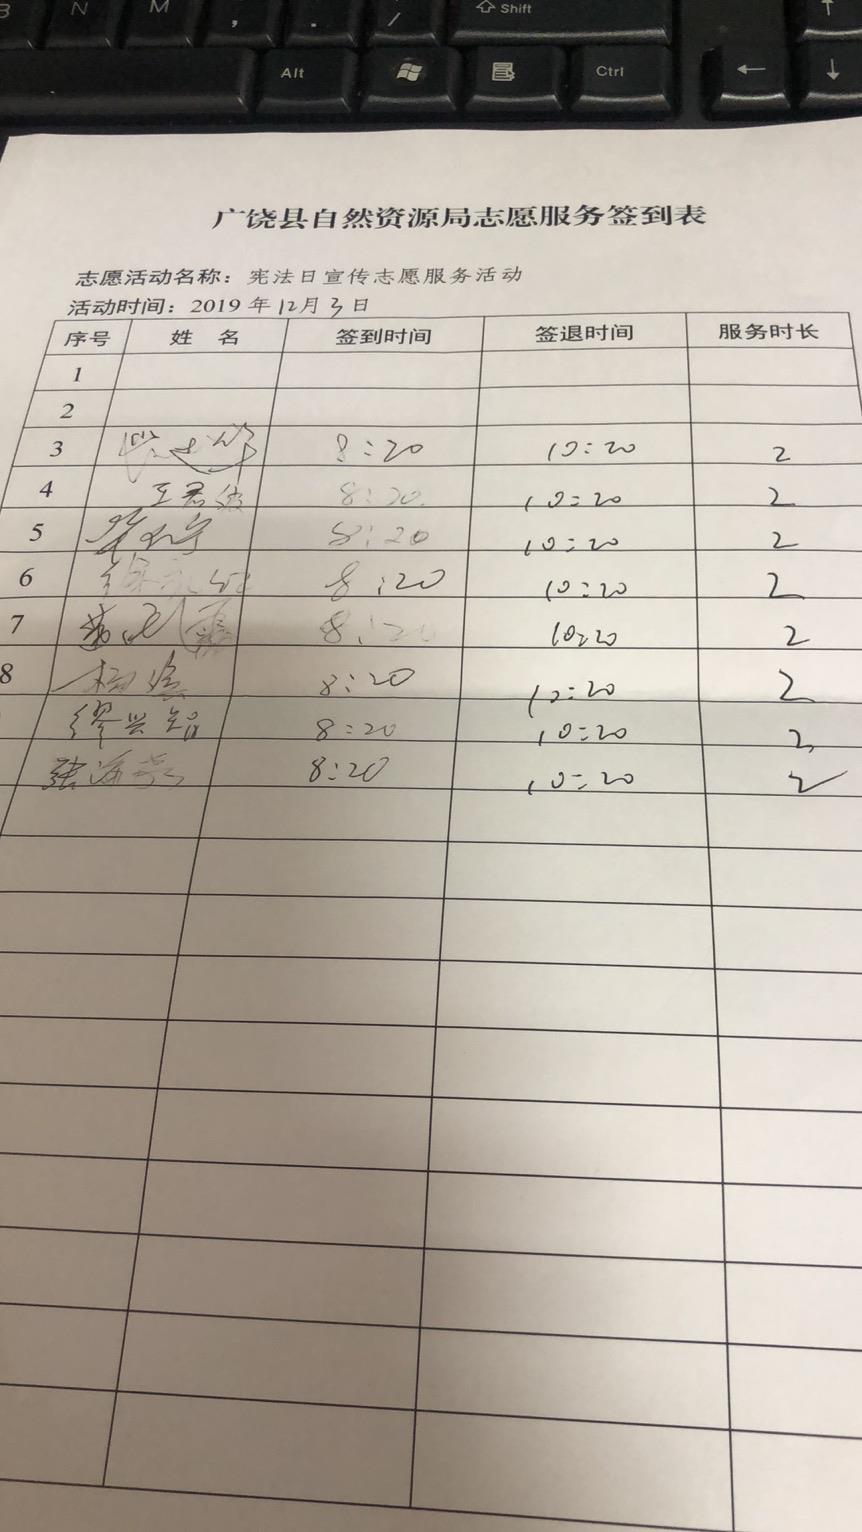 N M , . / ⇧ Shift
Alt Ctrl ← ↓ ↑
广饶县自然资源局志愿服务签到表
志愿活动名称：宪法日宣传志愿服务活动
活动时间：2019 年 12月 3 日
序号 姓 名 签到时间 签退时间 服务时长
1
2
3 8:20 10:20 2
4 王君 8:20 10:20 2
5 8:20 10:20 2
6 8:20 10:20 2
7 8:20 10:20 2
8 杨 8:20 10:20 2
缪兴 8:20 10:20 2
张海 8:20 10:20 2